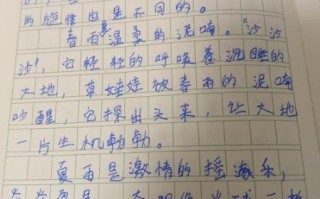 的脸情也是不同的。
春雨是温柔的泥喃。“沙沙
沙”，它轻轻的呼唤着沉睡的
大地，草娃娃被春雨的泥喃
吵醒，它探出头来，让大地
一片生机勃勃。
夏雨是激情的摇滚乐，